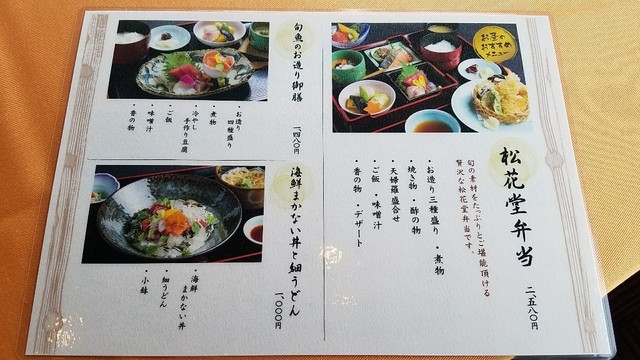 お昼の
おすすめ
メニュー
松花堂弁当
二、五八〇円
旬の素材をたっぷりとご堪能頂ける
贅沢な松花堂弁当です。
・お造り三種盛り ・煮物
・焼き物 ・酢の物
・天婦羅盛合せ
・ご飯 ・味噌汁
・香の物 ・デザート
旬魚のお造り御膳
一、四八〇円
・お造り
四種盛り
・煮物
・冷やし
手作り豆腐
・ご飯
・味噌汁
・香の物
海鮮まかない丼と細うどん
一、〇〇〇円
・海鮮
まかない丼
・細うどん
・小鉢